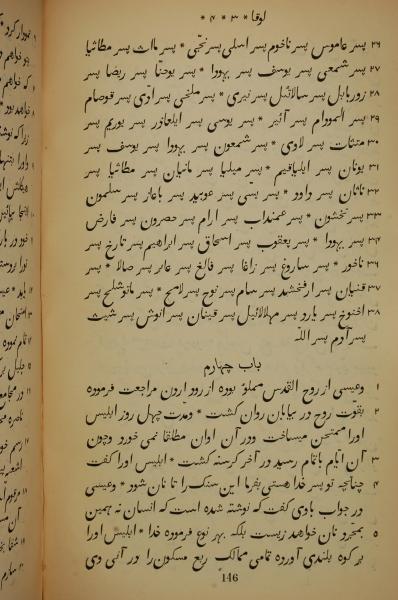 لوقا * ۳ * ۴ *
۲۶ پسر عاموس پسر ناخوم پسر اسلی پسر نجّی * پسر مااث پسر مطاثیا
۲۷ پسر شمعی پسر یوسف پسر یهودا * پسر یوحنّا پسر ریصا پسر
۲۸ زوربابل پسر سالاثیل پسر نیری * پسر ملخی پسر ادّی پسر قوصام
۲۹ پسر المودام پسر آئیر * پسر یوسی پسر ایلعاذر پسر یوریم پسر
۳۰ متثات پسر لاوی * پسر شمعون پسر یهودا پسر یوسف پسر
۳۱ یونان پسر ایلیاقیم * پسر میلیا پسر مانیان پسر مطاثیا پسر
۳۲ ناثان پسر داود * پسر یسّی پسر عوبید پسر باعاز پسر سلمون
۳۳ پسر نخشون * پسر عمنداب پسر ارام پسر حصرون پسر فارض
۳۴ پسر یهودا * پسر یعقوب پسر اسحاق پسر ابراهیم پسر تارخ پسر
۳۶ ناخور * پسر ساروغ پسر راغا پسر فالغ پسر عابر پسر صالا * پسر
۳۷ قنیان پسر ارفخشد پسر سام پسر نوح پسر لامخ * پسر مانوشلح پسر
۳۸ اخنوخ پسر یارد پسر مهلالائیل پسر قینان پسر انوش پسر شیث
پسر آدم پسر اللّه
باب چهارم
۱ وعیسی از روح القدس مملوّ بوده از رود اردن مراجعت فرموده
۲ بقوّت روح در بیابان روان گشت * ومدّت چهل روز ابلیس
اورا ممتحن میساخت ودر آن اوان مطلقا نمی خورد وچون
۳ آن ایّام باتمام رسید در آخر گرسنه گشت * ابلیس اورا گفت
۴ چنانچه تو پسر خدا هستی بفرما این سنگ را تا نان شود * وعیسی
در جواب باوی گفت که نوشته شده است که انسان نه همین
۵ بمجرّد نان خواهد زیست بلکه بهر نوع فرموده خدا * ابلیس اورا
بر کوه بلندی آورده تمامی ممالک ربع مسکون را در آنی وی
146